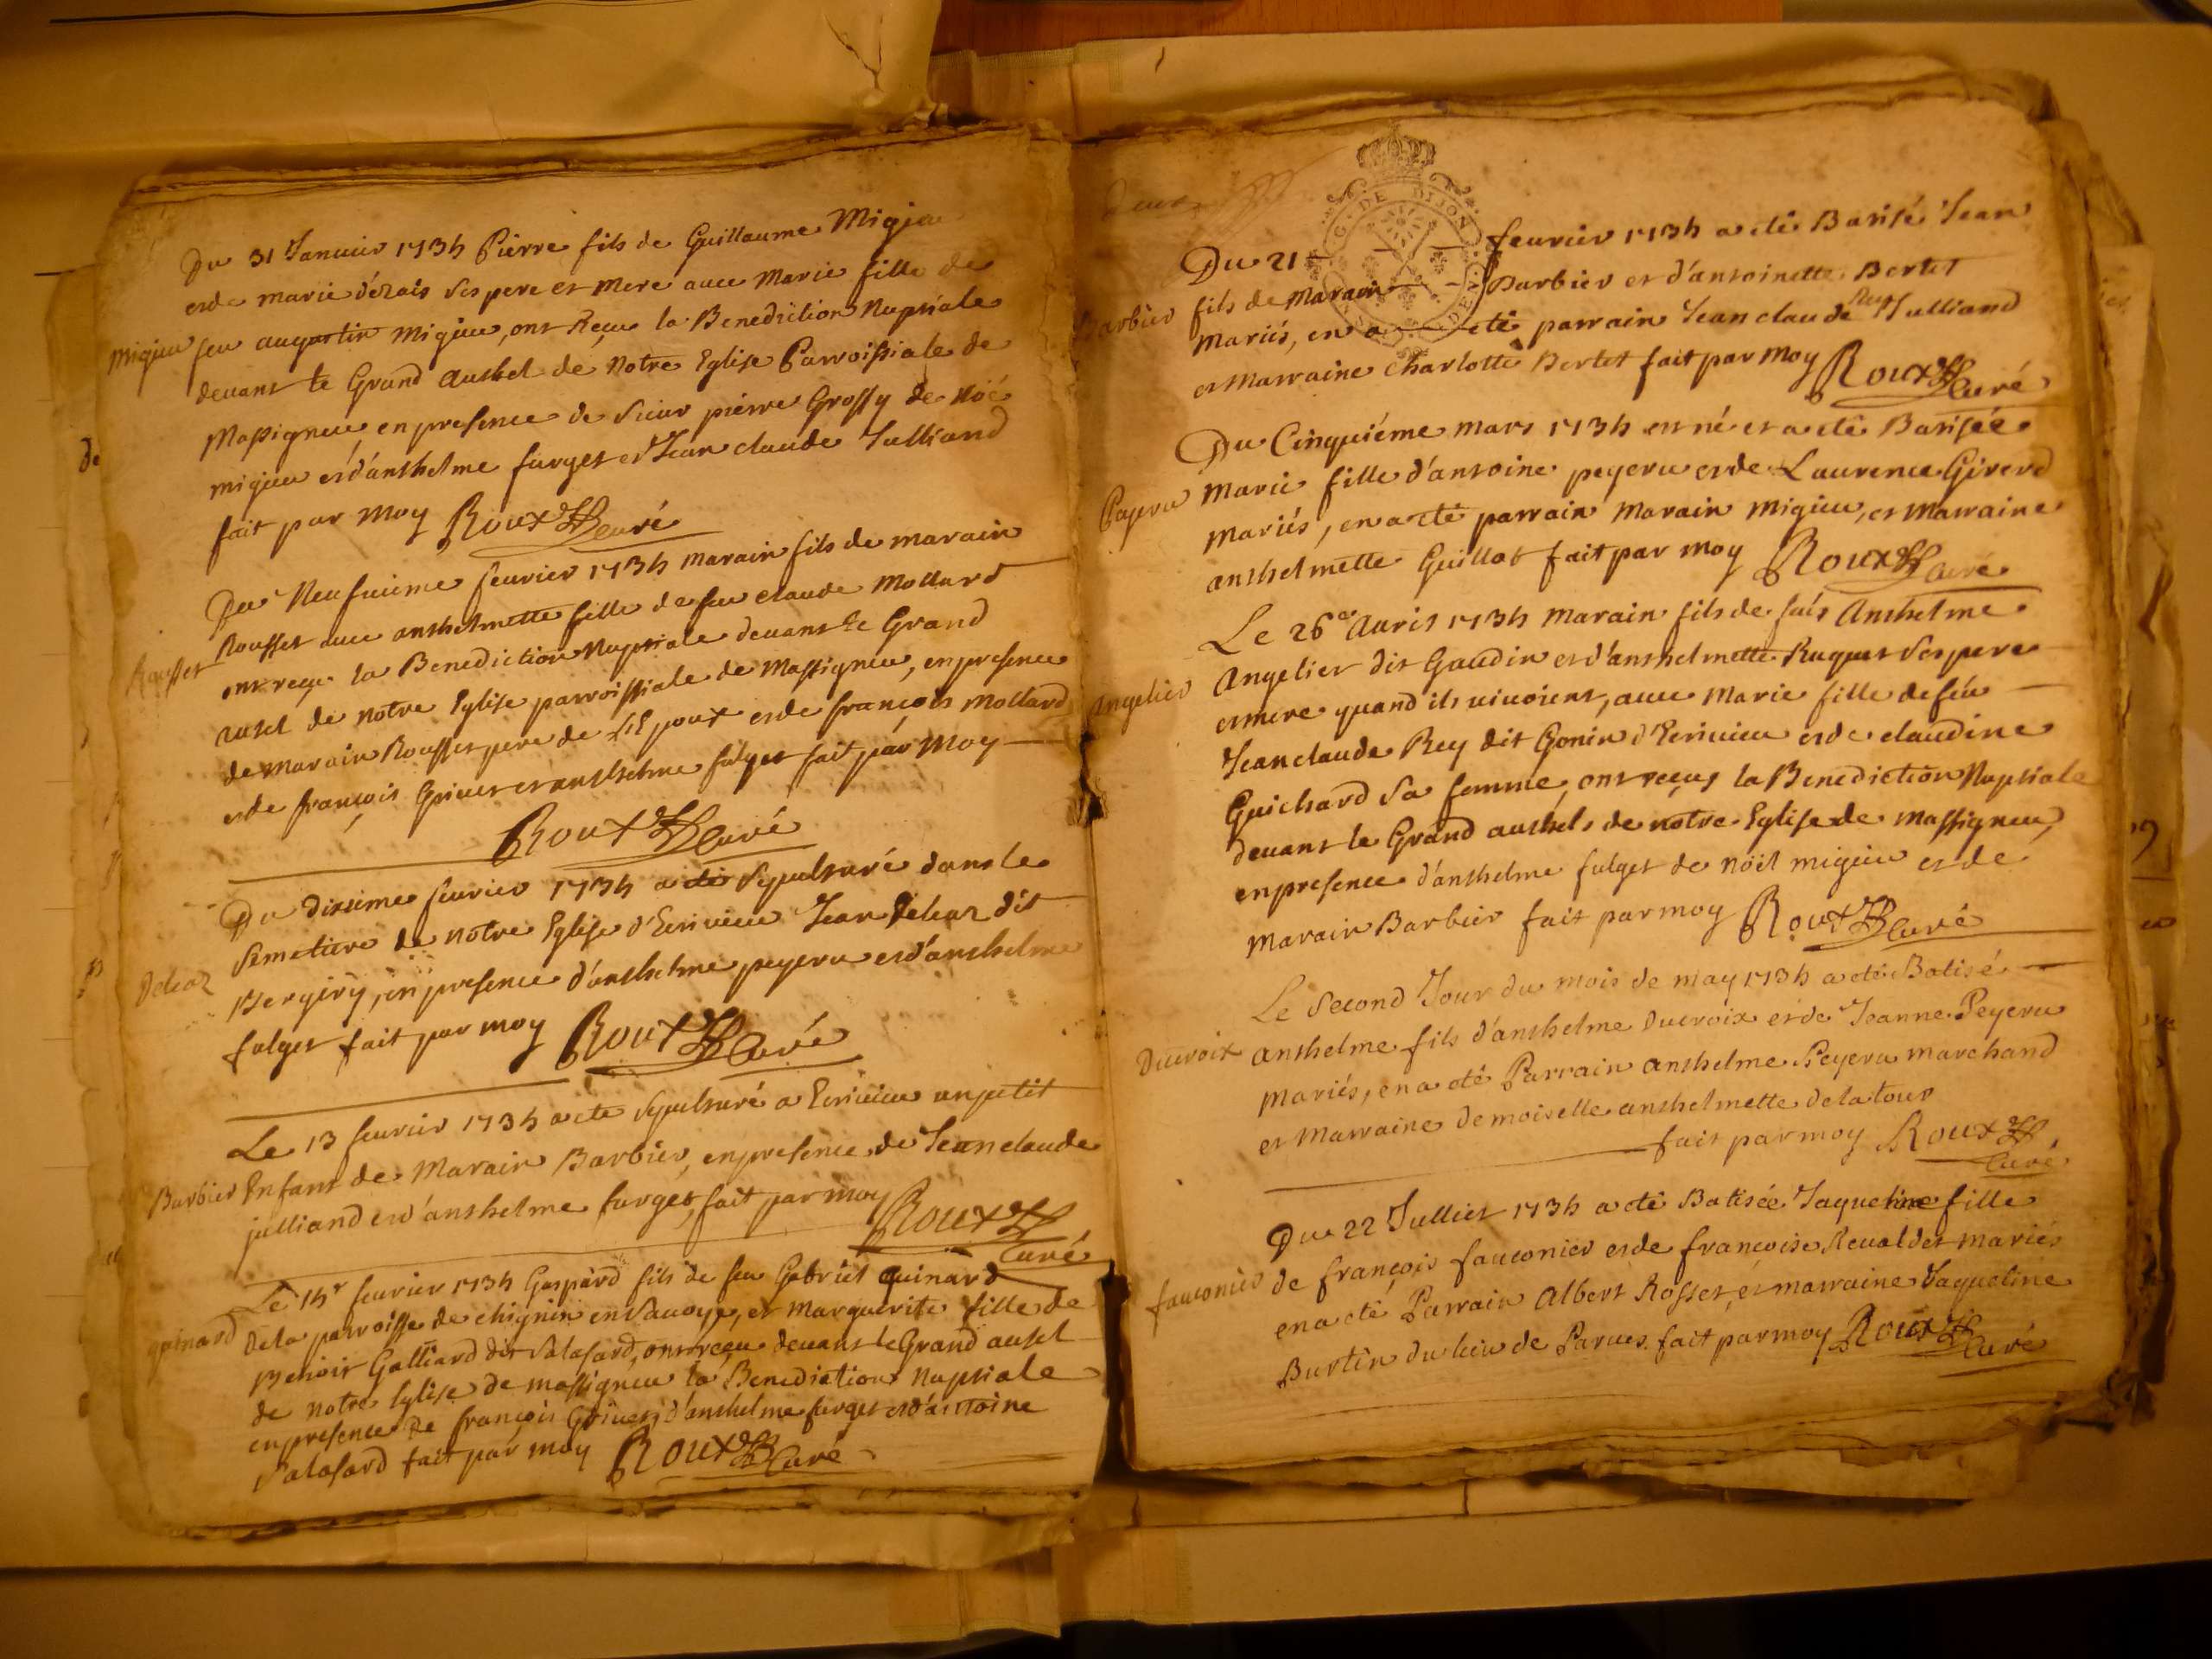 Du 31 Januier 1734 Pierre fils de Guillaume Migieu
et de marie ses pere et mere auec Marie fille de
Migieu
feu augustin migieu, ont Reçu la Benediction Nuptiale
deuant le Grand authel de Notre Eglise Parroissiale de
Massigneu en presence de sieur pierre Grossy de Noé
migieu et d'anthelme furget et Jean claude Julliand
fait par moy Roux curé
Du Neufuieme feurier 1734 marain fils de marain
Rousset
Rousset auec anthelmette fille de feu claude Mollard
ont reçu la Benediction Nuptiale deuant le Grand
autel de notre Eglise parroissiale de Massigneu, en presence
de marain Rousset pere de L'Epoux et de françois Mollard
et de françois Griuet et anthelme fulget fait par moy
Roux curé
Du dixieme feurier 1734 a eté sepulturé dans le
semetiere de notre Eglise d'Ecriuieu Jean Deleaz dit
Deleaz
Bergiry, en presence d'anthelme peyeru et d'anthelme
fulget fait par moy Roux Curé
Le 13 feurier 1734 a eté sepulturé a Ecriuieu un petit
Barbier
Enfant de Marain Barbier, en presence de Jean claude
julliand et d'anthelme furget, fait par moy Roux
Curé
Le 14r feurier 1734 Gaspard fils de feu Gabriel quinard
quinard
de la parroisse de chignin en Sauoye, et Marguerite fille de
Benoit Galliard dit Salasard, ont reçu deuant le Grand autel
de notre Eglise de massigneu la Benediction Nuptiale
en presence de françois Griuet, d'anthelme furget et d'antoine
Salasard fait par moy Roux Curé
G. DE DIJON
Du 21 feurier 1734 a eté Batisé Jean
Barbier
fils de Marain Barbier et d'antoinette Bertet
mariés, en a eté parrain Jean claude Rey Julliand
et Marraine charlotte Bertet fait par Moy Roux Curé
Du Cinquiéme mars 1734 est né et a eté Batisée
Payeru
Marie fille d'antoine peyeru et de Laurence Girerd
mariés, en a eté parrain Marain Migieu, et Marraine
anthelmette Guillot fait par moy Roux Curé
Le 26e Auril 1734 Marain fils de fûs Anthelme
Angelier
Angelier dit Gaudin et d'anthelmette Ruquet ses pere
et mere quand ils uiuoient, auec Marie fille de feu
Jean claude Rey dit Gonin d'Ecriuieu et de claudine
Guichard sa femme, ont reçus la Benediction Nuptiale
deuant le Grand authel de notre Eglise de Massigneu,
en presence d'anthelme fulget de noël migieu et de
Marain Barbier fait par moy Roux Curé
Le second Jour du mois de may 1734 a eté Batisé
Ducroix
anthelme fils d'anthelme Ducroix et de Jeanne Peyeru
Mariés, en a eté Parrain anthelme Peyeru marchand
et Marraine demoiselle anthelmette de la tour
fait par moy Roux
Curé
Du 22 Julliet 1734 a eté Batisée Jaqueline fille
fauconier
de françois fauconier et de françoise Reualdet mariés
en a eté Parrain Albert Rosset, et marraine Jaqueline
Burtin du lieu de Parues fait par moy Roux Curé